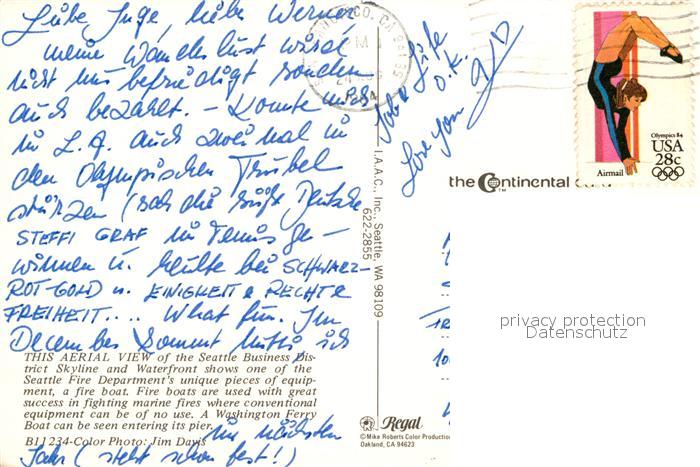 Liebe Inge, lieber Werner
meine Wanderlust wird
nicht nur befriedigt sondern
auch bezahlt. – Konnte mich
in L.A. auch zwei mal in
den Olympischen Trubel
stürzen (sah die süße Deutsche
STEFFI GRAF im Tennis ge-
winnen u. heulte bei SCHWARZ-
ROT-GOLD u. EINIGKEIT & RECHT &
FREIHEIT.... What fun. Im
December kommt Mutti, ich
im nächsten
Jahr (steht schon fest!)
Job & Life
O.K.
Love you
THIS AERIAL VIEW of the Seattle Business Dis-
trict Skyline and Waterfront shows one of the
Seattle Fire Department's unique pieces of equip-
ment, a fire boat. Fire boats are used with great
success in fighting marine fires where conventional
equipment can be of no use. A Washington Ferry
Boat can be seen entering its pier.
B11234-Color Photo: Jim Davis
I.A.A.C., Inc., Seattle, WA 98109
622-2855
the Continental card
TM
Regal
©Mike Roberts Color Production
Oakland, CA 94623
Olympics 84
USA
28c
Airmail
privacy protection
Datenschutz